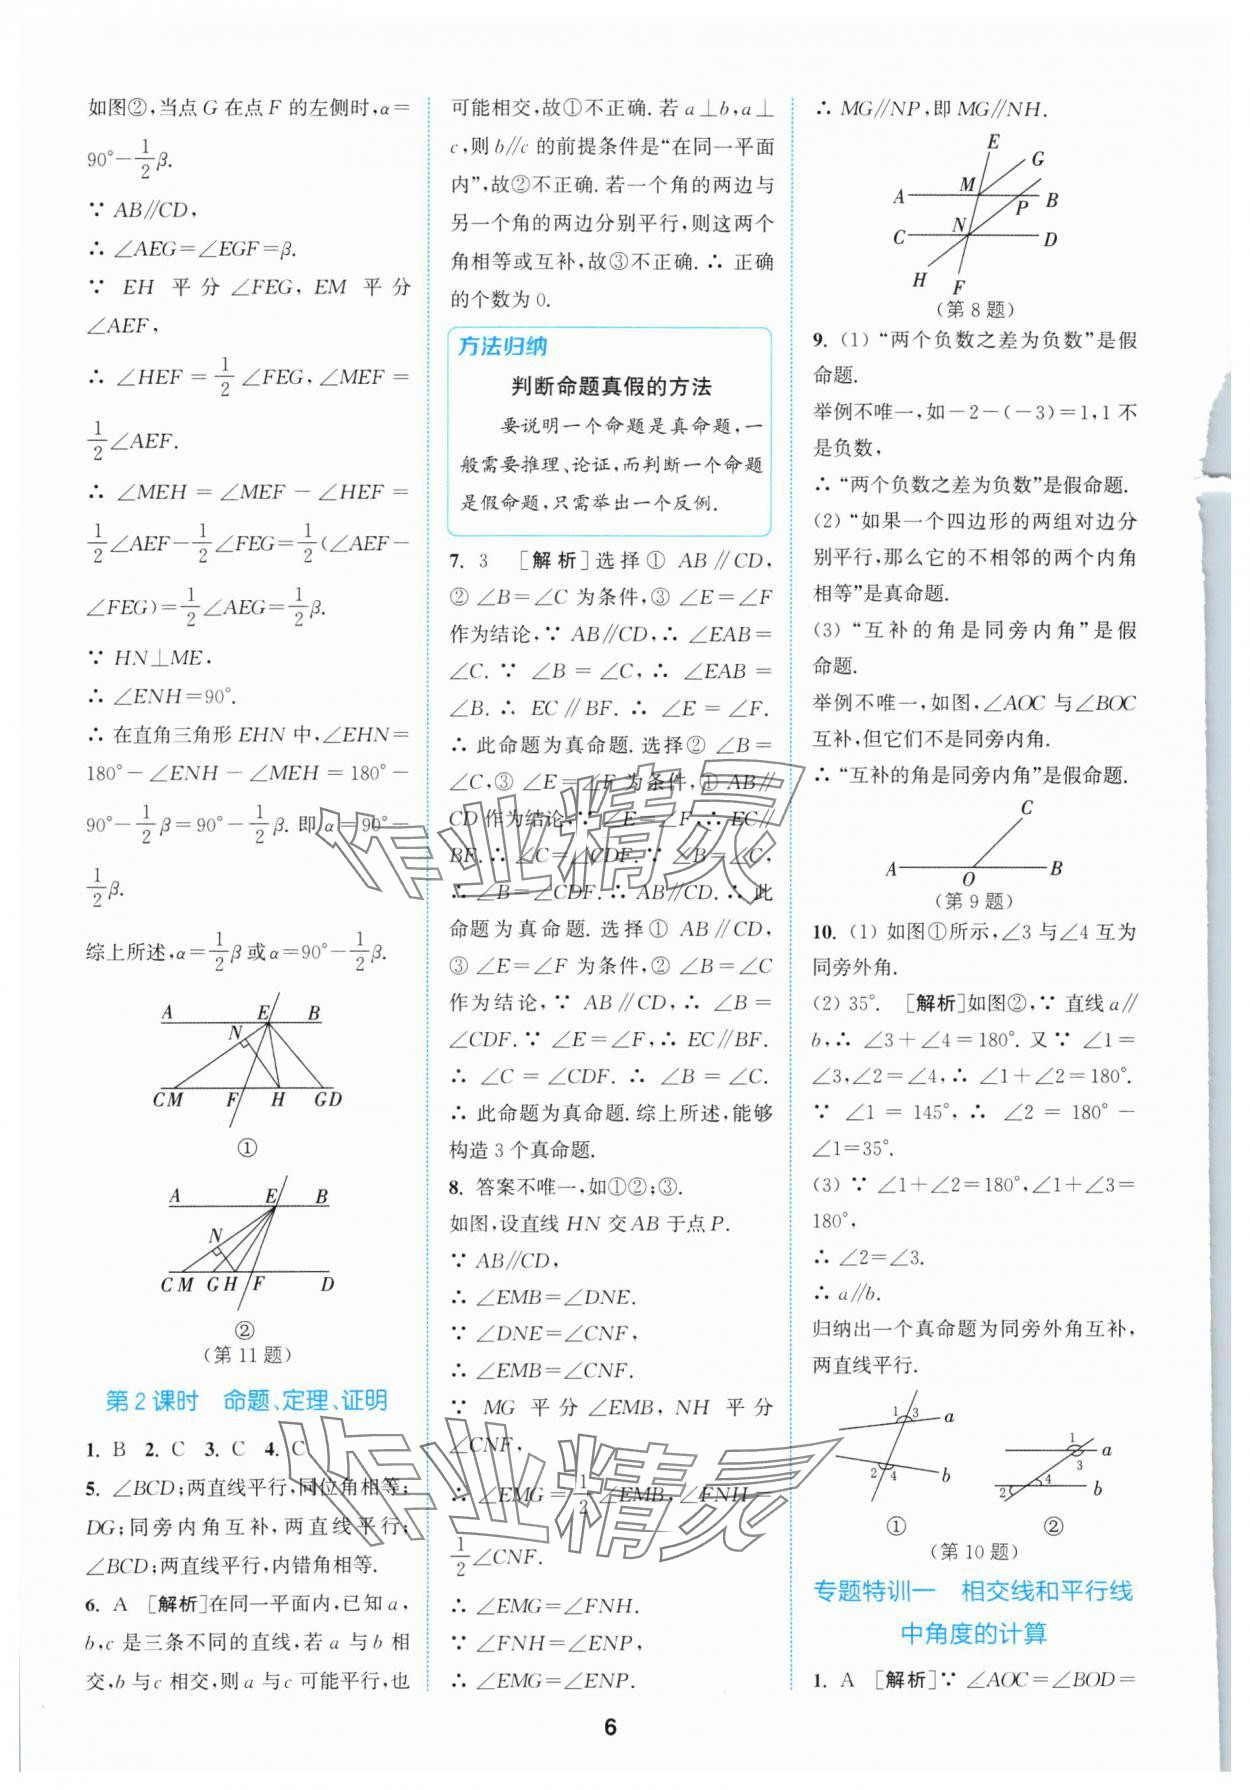 如图②,当点 G 在点 F 的左侧时,α=
90°-1/2β.
∵ AB∥CD,
∴ ∠AEG=∠EGF=β.
∵ EH 平分∠FEG,EM 平分
∠AEF,
∴ ∠HEF=1/2∠FEG,∠MEF=
1/2∠AEF.
∴ ∠MEH=∠MEF-∠HEF=
1/2∠AEF-1/2∠FEG=1/2(∠AEF-
∠FEG)=1/2∠AEG=1/2β.
∵ HN⊥ME,
∴ ∠ENH=90°.
∴ 在直角三角形 EHN 中,∠EHN=
180°-∠ENH-∠MEH=180°-
90°-1/2β=90°-1/2β.即 α=90°-
1/2β.
综上所述,α=1/2β或α=90°-1/2β.
A E B
N
CM F H GD
①
A E B
N
CM GH F D
②
(第11题)
第2课时 命题、定理、证明
1. B 2. C 3. C 4. C
5. ∠BCD;两直线平行,同位角相等;
DG;同旁内角互补,两直线平行;
∠BCD;两直线平行,内错角相等.
6. A [解析]在同一平面内,已知 a,
b,c 是三条不同的直线,若 a 与 b 相
交,b 与 c 相交,则 a 与 c 可能平行,也
可能相交,故①不正确.若 a⊥b,a⊥
c,则 b∥c 的前提条件是“在同一平面
内”,故②不正确.若一个角的两边与
另一个角的两边分别平行,则这两个
角相等或互补,故③不正确.∴ 正确
的个数为 0.
方法归纳
判断命题真假的方法
要说明一个命题是真命题,一
般需要推理、论证,而判断一个命题
是假命题,只需举出一个反例.
7. 3 [解析]选择① AB∥CD,
② ∠B=∠C 为条件,③ ∠E=∠F
作为结论,∵ AB∥CD,∴ ∠EAB=
∠C.∵ ∠B=∠C,∴ ∠EAB=
∠B.∴ EC∥BF.∴ ∠E=∠F.
∴ 此命题为真命题.选择② ∠B=
∠C,③ ∠E=∠F 为条件,① AB∥
CD 作为结论,∵ ∠E=∠F,∴ EC∥
BF.∴ ∠C=∠CDF.∵ ∠B=∠C,
∴ ∠B=∠CDF.∴ AB∥CD.∴ 此
命题为真命题.选择① AB∥CD,
③ ∠E=∠F 为条件,② ∠B=∠C
作为结论,∵ AB∥CD,∴ ∠B=
∠CDF.∵ ∠E=∠F,∴ EC∥BF.
∴ ∠C=∠CDF.∴ ∠B=∠C.
∴ 此命题为真命题.综上所述,能够
构造 3 个真命题.
8. 答案不唯一,如①②;③.
如图,设直线 HN 交 AB 于点 P.
∵ AB∥CD,
∴ ∠EMB=∠DNE.
∵ ∠DNE=∠CNF,
∴ ∠EMB=∠CNF.
∵ MG 平分∠EMB,NH 平分
∠CNF,
∴ ∠EMG=1/2∠EMB,∠FNH=
1/2∠CNF.
∴ ∠EMG=∠FNH.
∵ ∠FNH=∠ENP,
∴ ∠EMG=∠ENP.
∴ MG∥NP,即 MG∥NH.
E G
A M P B
C N D
H F
(第8题)
9. (1) “两个负数之差为负数”是假
命题.
举例不唯一,如-2-(-3)=1,1 不
是负数,
∴ “两个负数之差为负数”是假命题.
(2) “如果一个四边形的两组对边分
别平行,那么它的不相邻的两个内角
相等”是真命题.
(3) “互补的角是同旁内角”是假
命题.
举例不唯一,如图,∠AOC 与∠BOC
互补,但它们不是同旁内角.
∴ “互补的角是同旁内角”是假命题.
C
A O B
(第9题)
10. (1) 如图①所示,∠3 与∠4 互为
同旁外角.
(2) 35°. [解析]如图②,∵ 直线 a∥
b,∴ ∠3+∠4=180°.又∵ ∠1=
∠3,∠2=∠4,∴ ∠1+∠2=180°.
∵ ∠1=145°,∴ ∠2=180°-
∠1=35°.
(3) ∵ ∠1+∠2=180°,∠1+∠3=
180°,
∴ ∠2=∠3.
∴ a∥b.
归纳出一个真命题为同旁外角互补,
两直线平行.
1 3 a
2 4 b
①
1 3 a
2 4 b
②
(第10题)
专题特训一 相交线和平行线
中角度的计算
1. A [解析]∵ ∠AOC=∠BOD=
作业精灵
作业精灵
6